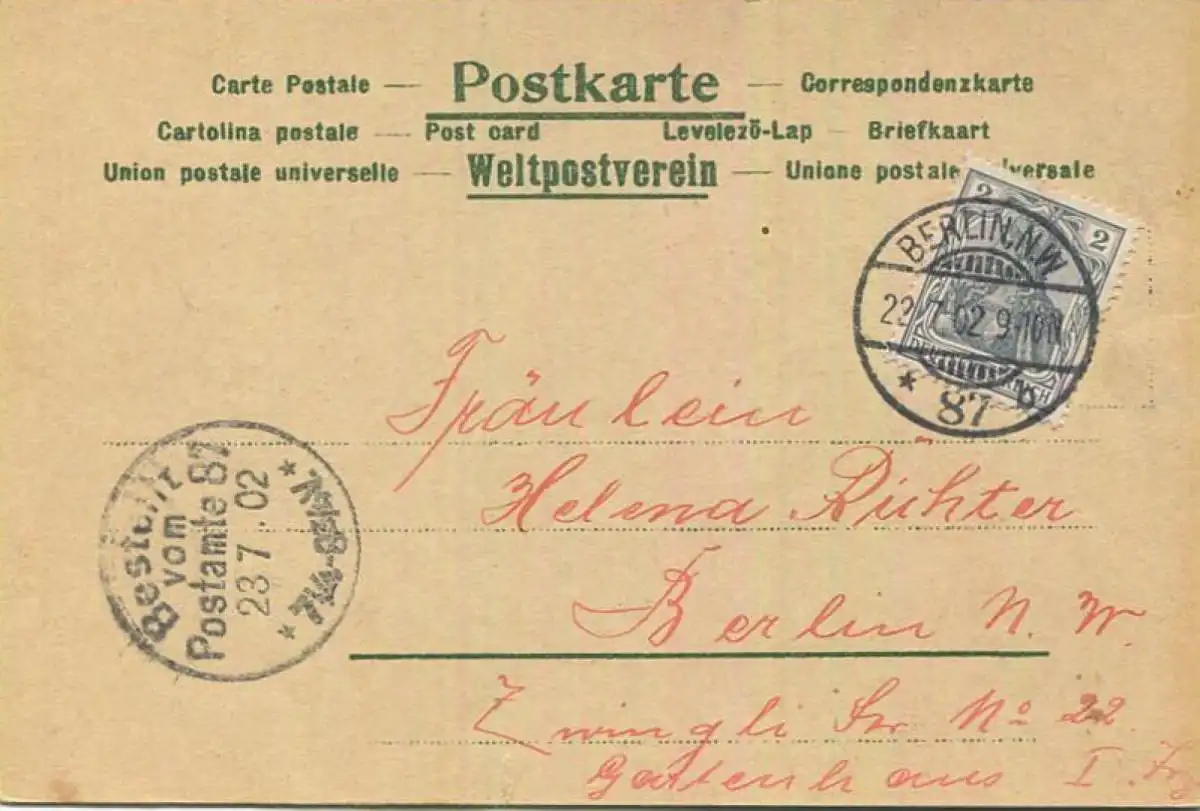 Carte Postale — Postkarte — Correspondenzkarte
Cartolina postale — Post card Levelező-Lap — Briefkaart
Union postale universelle — Weltpostverein — Unione postale versale
2 2
BERLIN, N.W.
22.7.02 9-10N
* 87 b
Fräulein
Helena Richter
Berlin N. W.
Zwingli Str No 22
Gartenhaus I.
Bestellt
vom
Postamte 87
23.7.02
* 7¼-8¼V. *